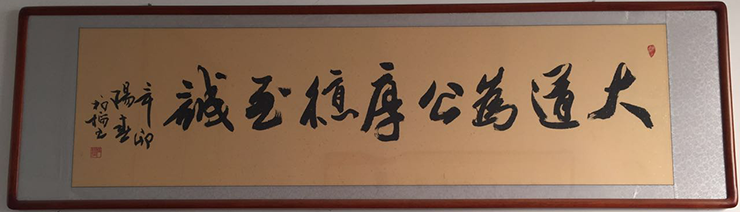 大道為公厚德至誠
辛卯
陽春